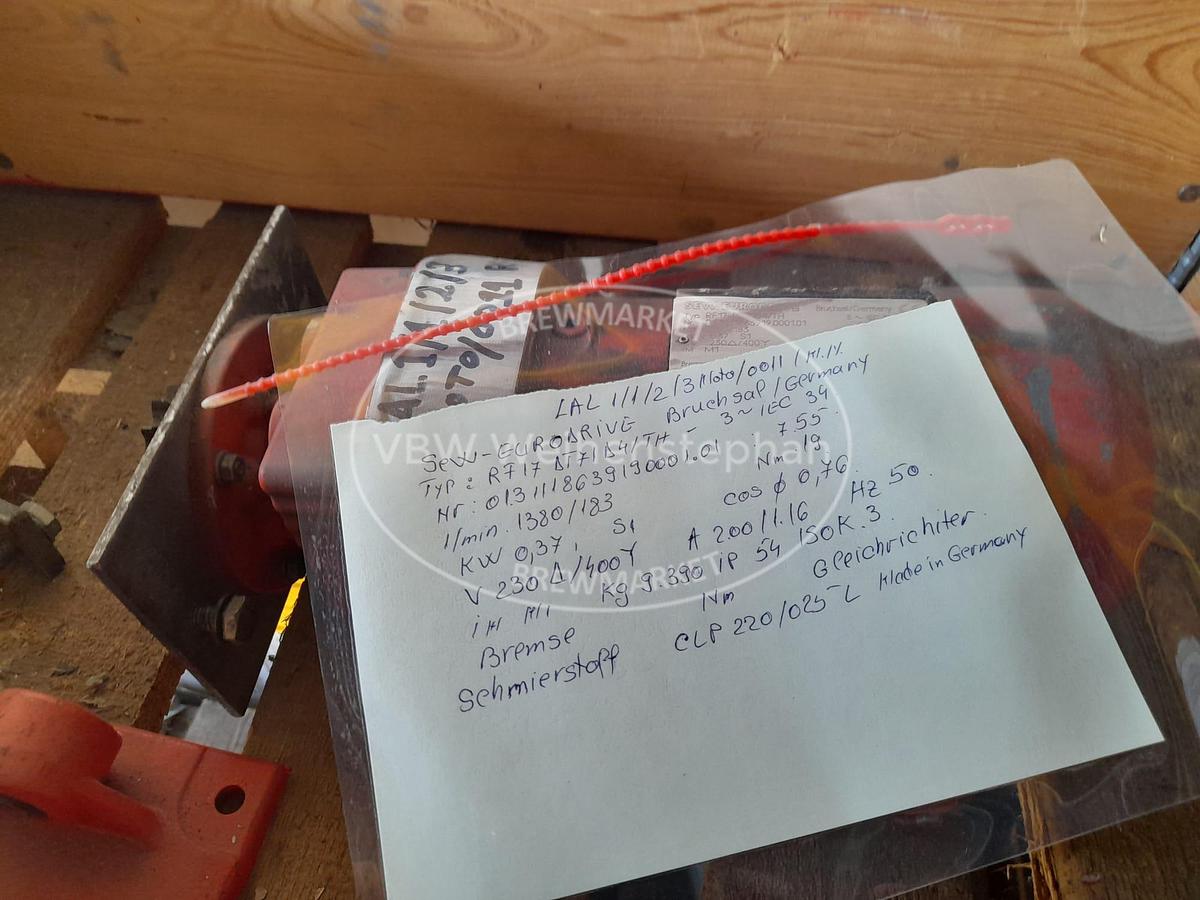 AL.1/1/2/3
BREWMARKET
SEW-EURO
Bruchsal/Germany
LAL 1/1/2/3/Moto/0011/M.1/.
SEW-EURODRIVE Bruchsal/Germany
Typ: RF17 DT71D4/TH - 3~ IEC 34
Nr: 013111863919.0001.01 i 7.55
1/min. 1380/183 Nm 19
KW 0,37, S1 cos φ 0,76
V 230 Δ/400Y A 200/1.16 HZ 50.
iM M1 Kg 9.390 iP 54 ISOK.3.
Bremse Nm Gleichrichiter.
Schmierstoff CLP 220/025 L Made in Germany
VBW Weihenstephan
BREWMARKET